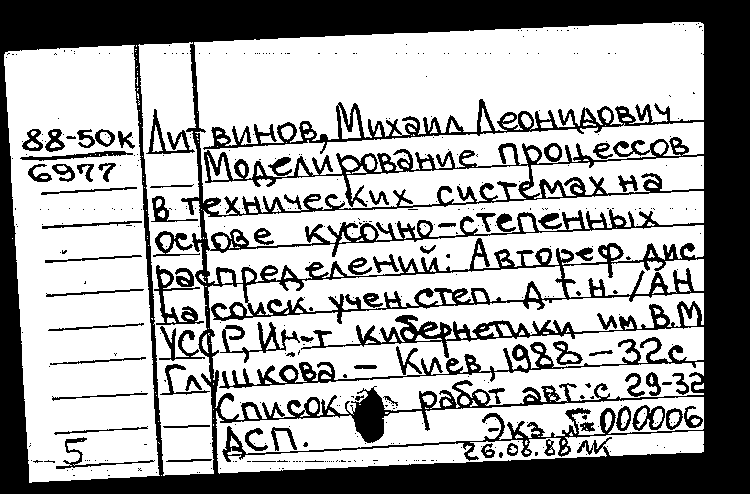 88-50к
6977
Литвинов, Михаил Леонидович
Моделирование процессов
в технических системах на
основе кусочно-степенных
распределений: Автореф. дис
на соиск. учен. степ. д.т.н. /АН
УССР, Ин-т кибернетики им. В.М
Глушкова. — Киев, 1988. — 32с.
Список работ авт.: с. 29-32
ДСП. Экз. № 000006
5 26.08.88 ЛК